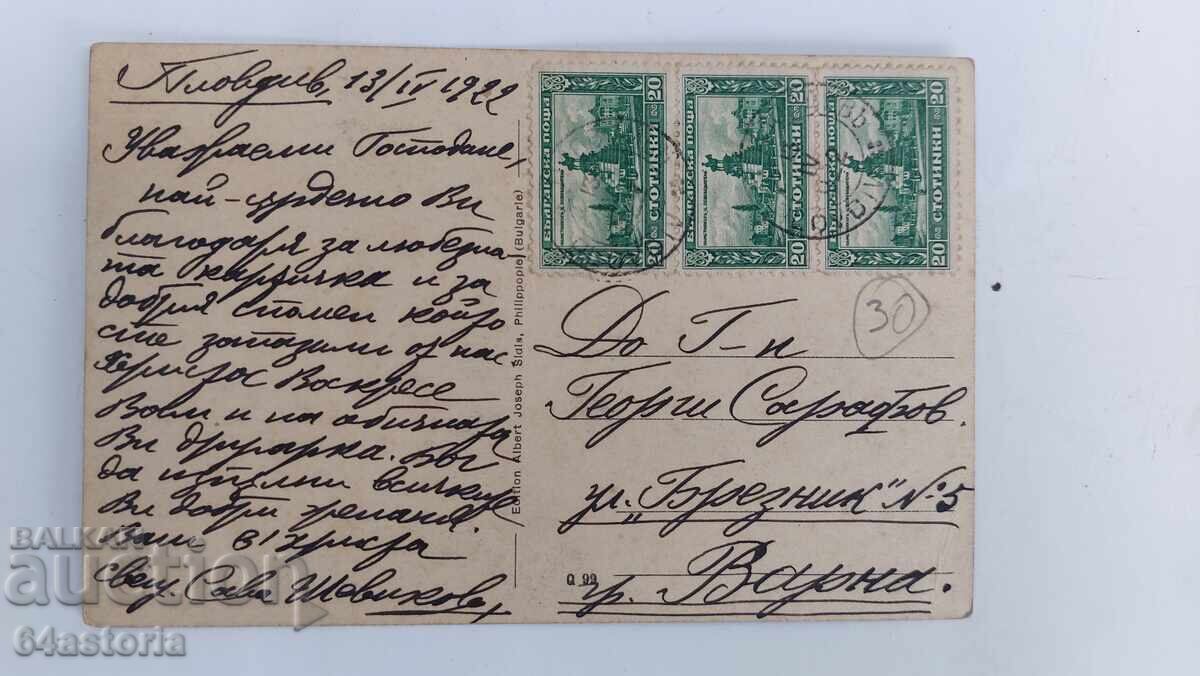 Пловдив, 13/IV 1922
Уважаеми Господине,
най-сърдечно Ви
благодаря за любезна
та картичка и за
добрия спомен който
сте запазили от нас
Христос Воскресе
Вам и на обичната
Ви другарка. Бог
да изпълни всичките
Ви добри желания.
Ваш в Христа
свещ. Сава
Edition Albert Joseph Sidis, Philippople (Bulgarie)
БЪЛГАРСКА ПОЩА
20 СТОТИНКИ 20
БЪЛГАРСКА ПОЩА
20 СТОТИНКИ 20
БЪЛГАРСКА ПОЩА
20 СТОТИНКИ 20
30
До Г-н
Георги Сарафов.
ул. "Брезник" №5
Q 99
гр. Варна.
BALKAN
auction
64astoria